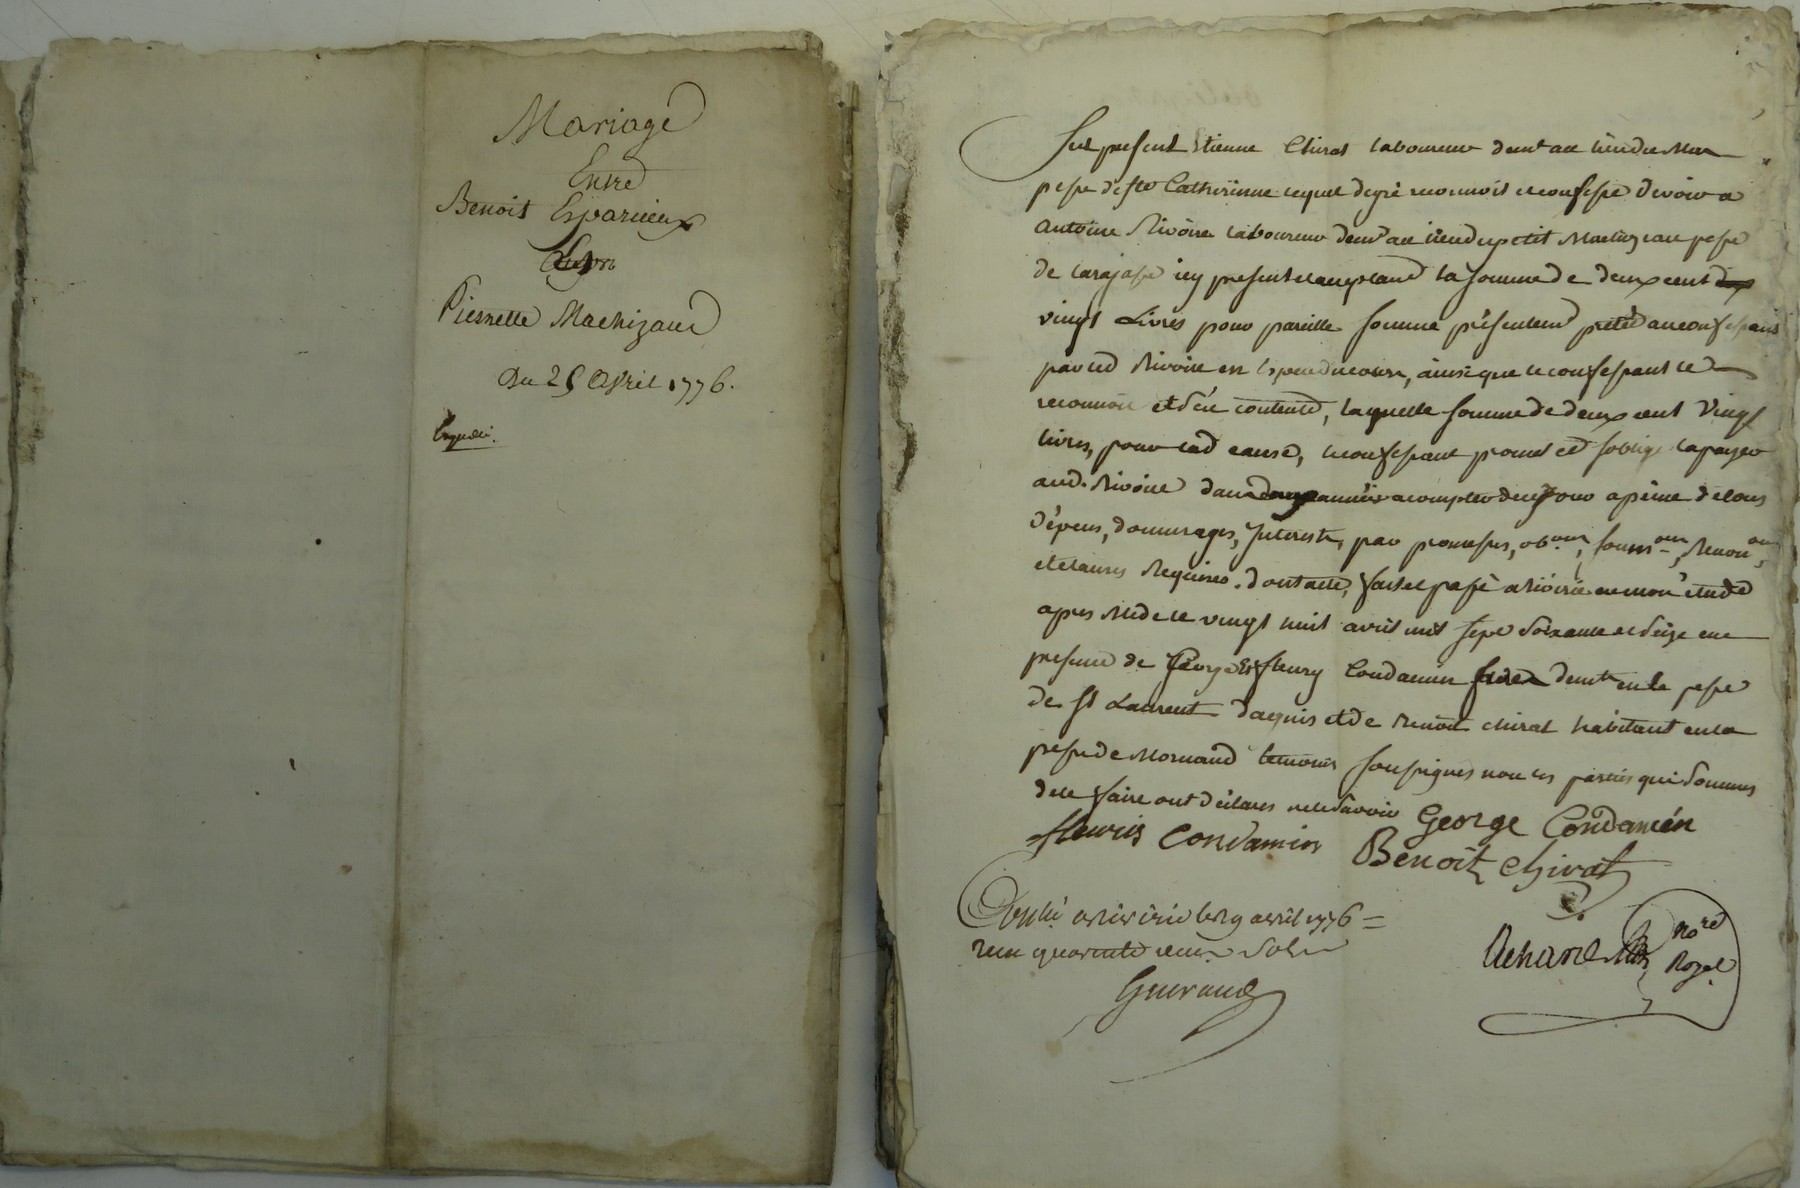 Mariage
Entre
Benoit Esparcieux
Pierrette Machizaud
Du 25 Avril 1776.
Expedié.
Fut present Etienne Chirat laboureur demt au lieu du Mas
psse de ste Catherinne lequel de gré reconnoit et confesse devoir a
Antoine Rivoire laboureur demt au lieu du petit Machizaux psse
de Larajasse icy present et acceptant la somme de deux cent
vingt Livres pour pareille somme présentemt preté au confessant
par led Rivoire en espece du cours, ainsi que le confessant le
reconnoit et s'en contente, laquelle somme de deux cent Vingt
livres, pour lad cause, le confessant promet et soblige la payer
aud. Rivoire dans année a compter de ce jour a peine de tous
dépens, dommages, Interests, par promesses, obons, soumons, Renonons,
et clauses Requises. dont acte, fait et passé a Riverie en mon étude
apres Midi le vingt huit avril mil sept soixante et seize en
presence de George et fleury Condamin demts en la psse
de St Laurent dagnis et de Benoit chirat habitant en la
psse de Mornand temoins soussignés non les parties qui sommés
de le faire ont déclarés ne le sçavoir George Condamin
fleuris Condamin Benoit chirat
Conlé a Riverie le 29 avril 1776
Recu quarente deux sols
Guiraud
nore
Royal